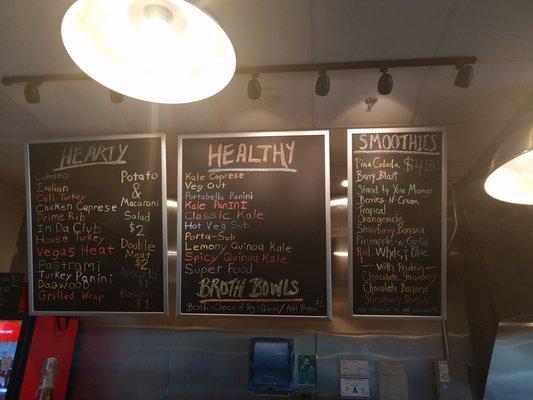 HEARTY
Cubano
Italian
Cali-Turkey
Chicken Caprese
Prime Rib
In Da Club
House Turkey
Vegas Heat
Pastrami
Turkey Panini
Dagwood
Grilled Wrap
Potato
&
Macaroni
Salad
$2
Double
Meat
$2
Avocado
$1
Bacon
$1
HEALTHY
Kale Caprese
Veg Out
Portabella Panini
Kale PaNINI
Classic Kale
Hot Veg Sub
Porta-Sub
Lemony Quinoa Kale
Spicy Quinoa Kale
Super Food
BROTH BOWLS
Broth-Choice of Veg-Quinoa/Add Protein
SMOOTHIES
Pina Colada $4.50
Berry Blast
Stand by You Mango
Berries-N-Cream
Tropical
Orangesicle
Strawberry Banana
Pineapple-a-Go-Go
Red, White, & Blue
With Protein
Chocolate Strawberry
Chocolate Banana
Strawberry